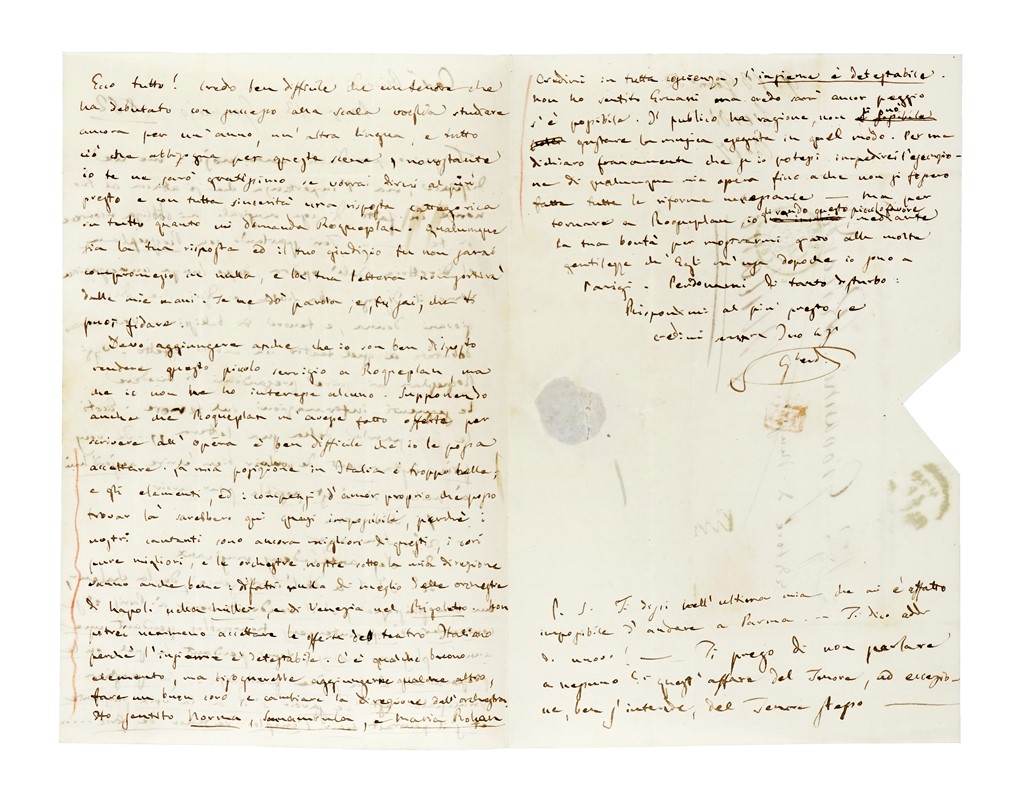 Ecco tutto! Credo ben difficile che un tenore che
ha debutato con successo alla scala voglia studiare
ancora per un'anno, un'altra lingua, e tutto
ciò che abbisogna per queste scene, nonostante
io te ne sarò gratissimo se vorrai dirmi al più
presto e con tutta sincerità una risposta cattegorica
su tutto quanto mi domanda Roqueplan. Qualunque
sia la tua risposta ed il tuo giudizio tu non sarai
compromesso in nulla, e la tua lettera non sortirà
dalle mie mani. Te ne dò parola, e, tu sai, che ti
puoi fidare.
Devo aggiungere anche che io son ben disposto
rendere questo piccolo servizio a Roqueplan, ma
che io non ne ho interesse alcuno. Supponendo
anche che Roqueplan m'avesse fatto offerte per
scrivere all'opéra è ben difficile che io le possa
accettare. La mia posizione in Italia è troppo bella;
e gli elementi, ed i compensi d'amor proprio che posso
trovar là sarebbero qui quasi impossibili, perchè i
nostri cantanti sono ancora migliori di questi, i cori
pure migliori, e le orchestre nostre sotto la mia direzione
vanno anche bene: difatti nulla di meglio delle orchestre
di Napoli nella Miller, e di Venezia nel Rigoletto. Non
potrei nemmeno accettare le offerte del teatro Italiano
perchè l'insieme è detestabile. C'è qualche buono
elemento, ma bisognerebbe aggiungerne qualche altro,
fare un buon coro, e cambiare la direzione dell'orchestra.
Ho sentito Norma, Sonnambula, e Maria Rohan
Credimi in tutta coscienza, l'insieme è detestabile.
Non ho sentito Ernani ma credo sarà ancor peggio
s'è possibile. Il publico ha ragione, non si può
gustare la musica eseguita in quel modo. Per me
dichiaro francamente che se io potessi impedirei l'esecuzio-
ne di qualunque mia opera fino a che non si fossero
fatte tutte le riforme necessarie — ma per
tornare a Roqueplan, io farando questo piccolo favore, mediante
la tua bontà per mostrarmi grato alle molte
gentilezze ch'Egli m'usa dopochè io sono a
Parigi. Perdonami di tanto disturbo:
Rispondimi al più presto, e
credimi sempre Tuo aff
GVerdi
P. S. Ti dissi nell'ultima mia che mi è affatto
impossibile d'andare a Parma. — Ti dico addi
di nuovo! — Ti prego di non parlare
a nessuno di quest'affare del Tenore, ad eccezio-
ne, ben s'intende, del Tenore stesso —